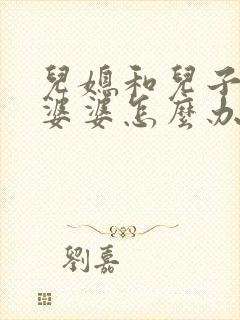 兒媳和兒子
婆婆怎麼办
劉嘉